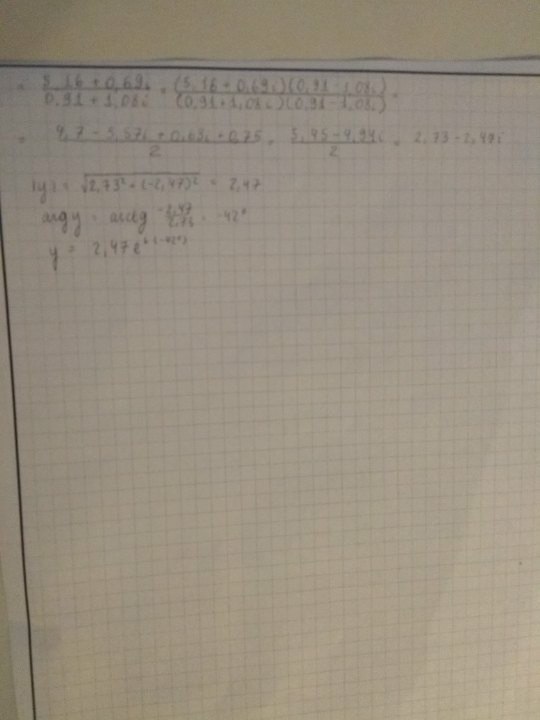 = (5,16 + 0,69i)/(0,91 + 1,08i) = (5,16 + 0,69i)(0,91 - 1,08i)/(0,91 + 1,08i)(0,91 - 1,08i) =
= (4,7 - 5,57i + 0,63i + 0,75)/2 = (5,45 - 4,94i)/2 = 2,73 - 2,47i
|y| = √2,73² + (-2,47)² = 2,47
arg y = arctg -2,47/2,73 = -42°
y = 2,47 e^i(-42°)